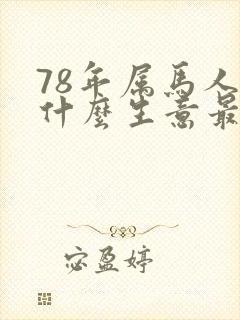 78年属馬人
什麽生意最
宓盈婷